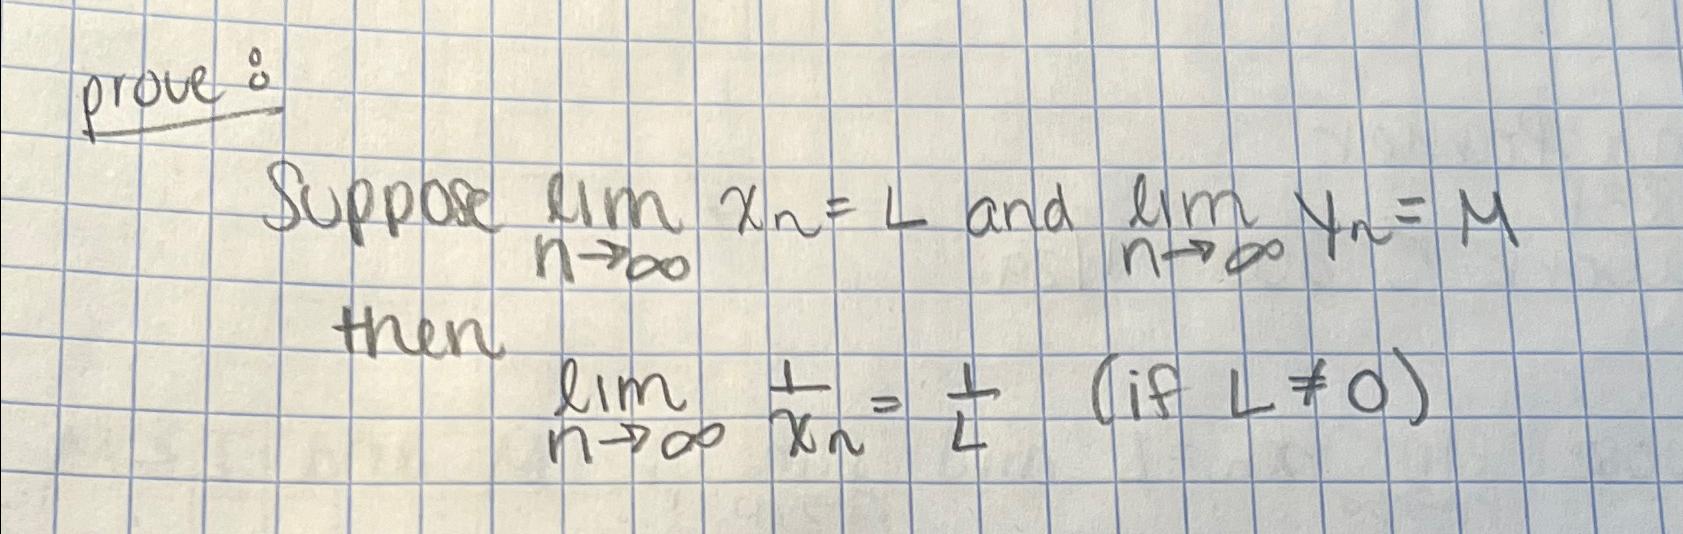 prove :
Suppose lim n→∞ xn = L and lim n→∞ yn = M
then
lim n→∞ 1/xn = 1/L (if L ≠ 0)